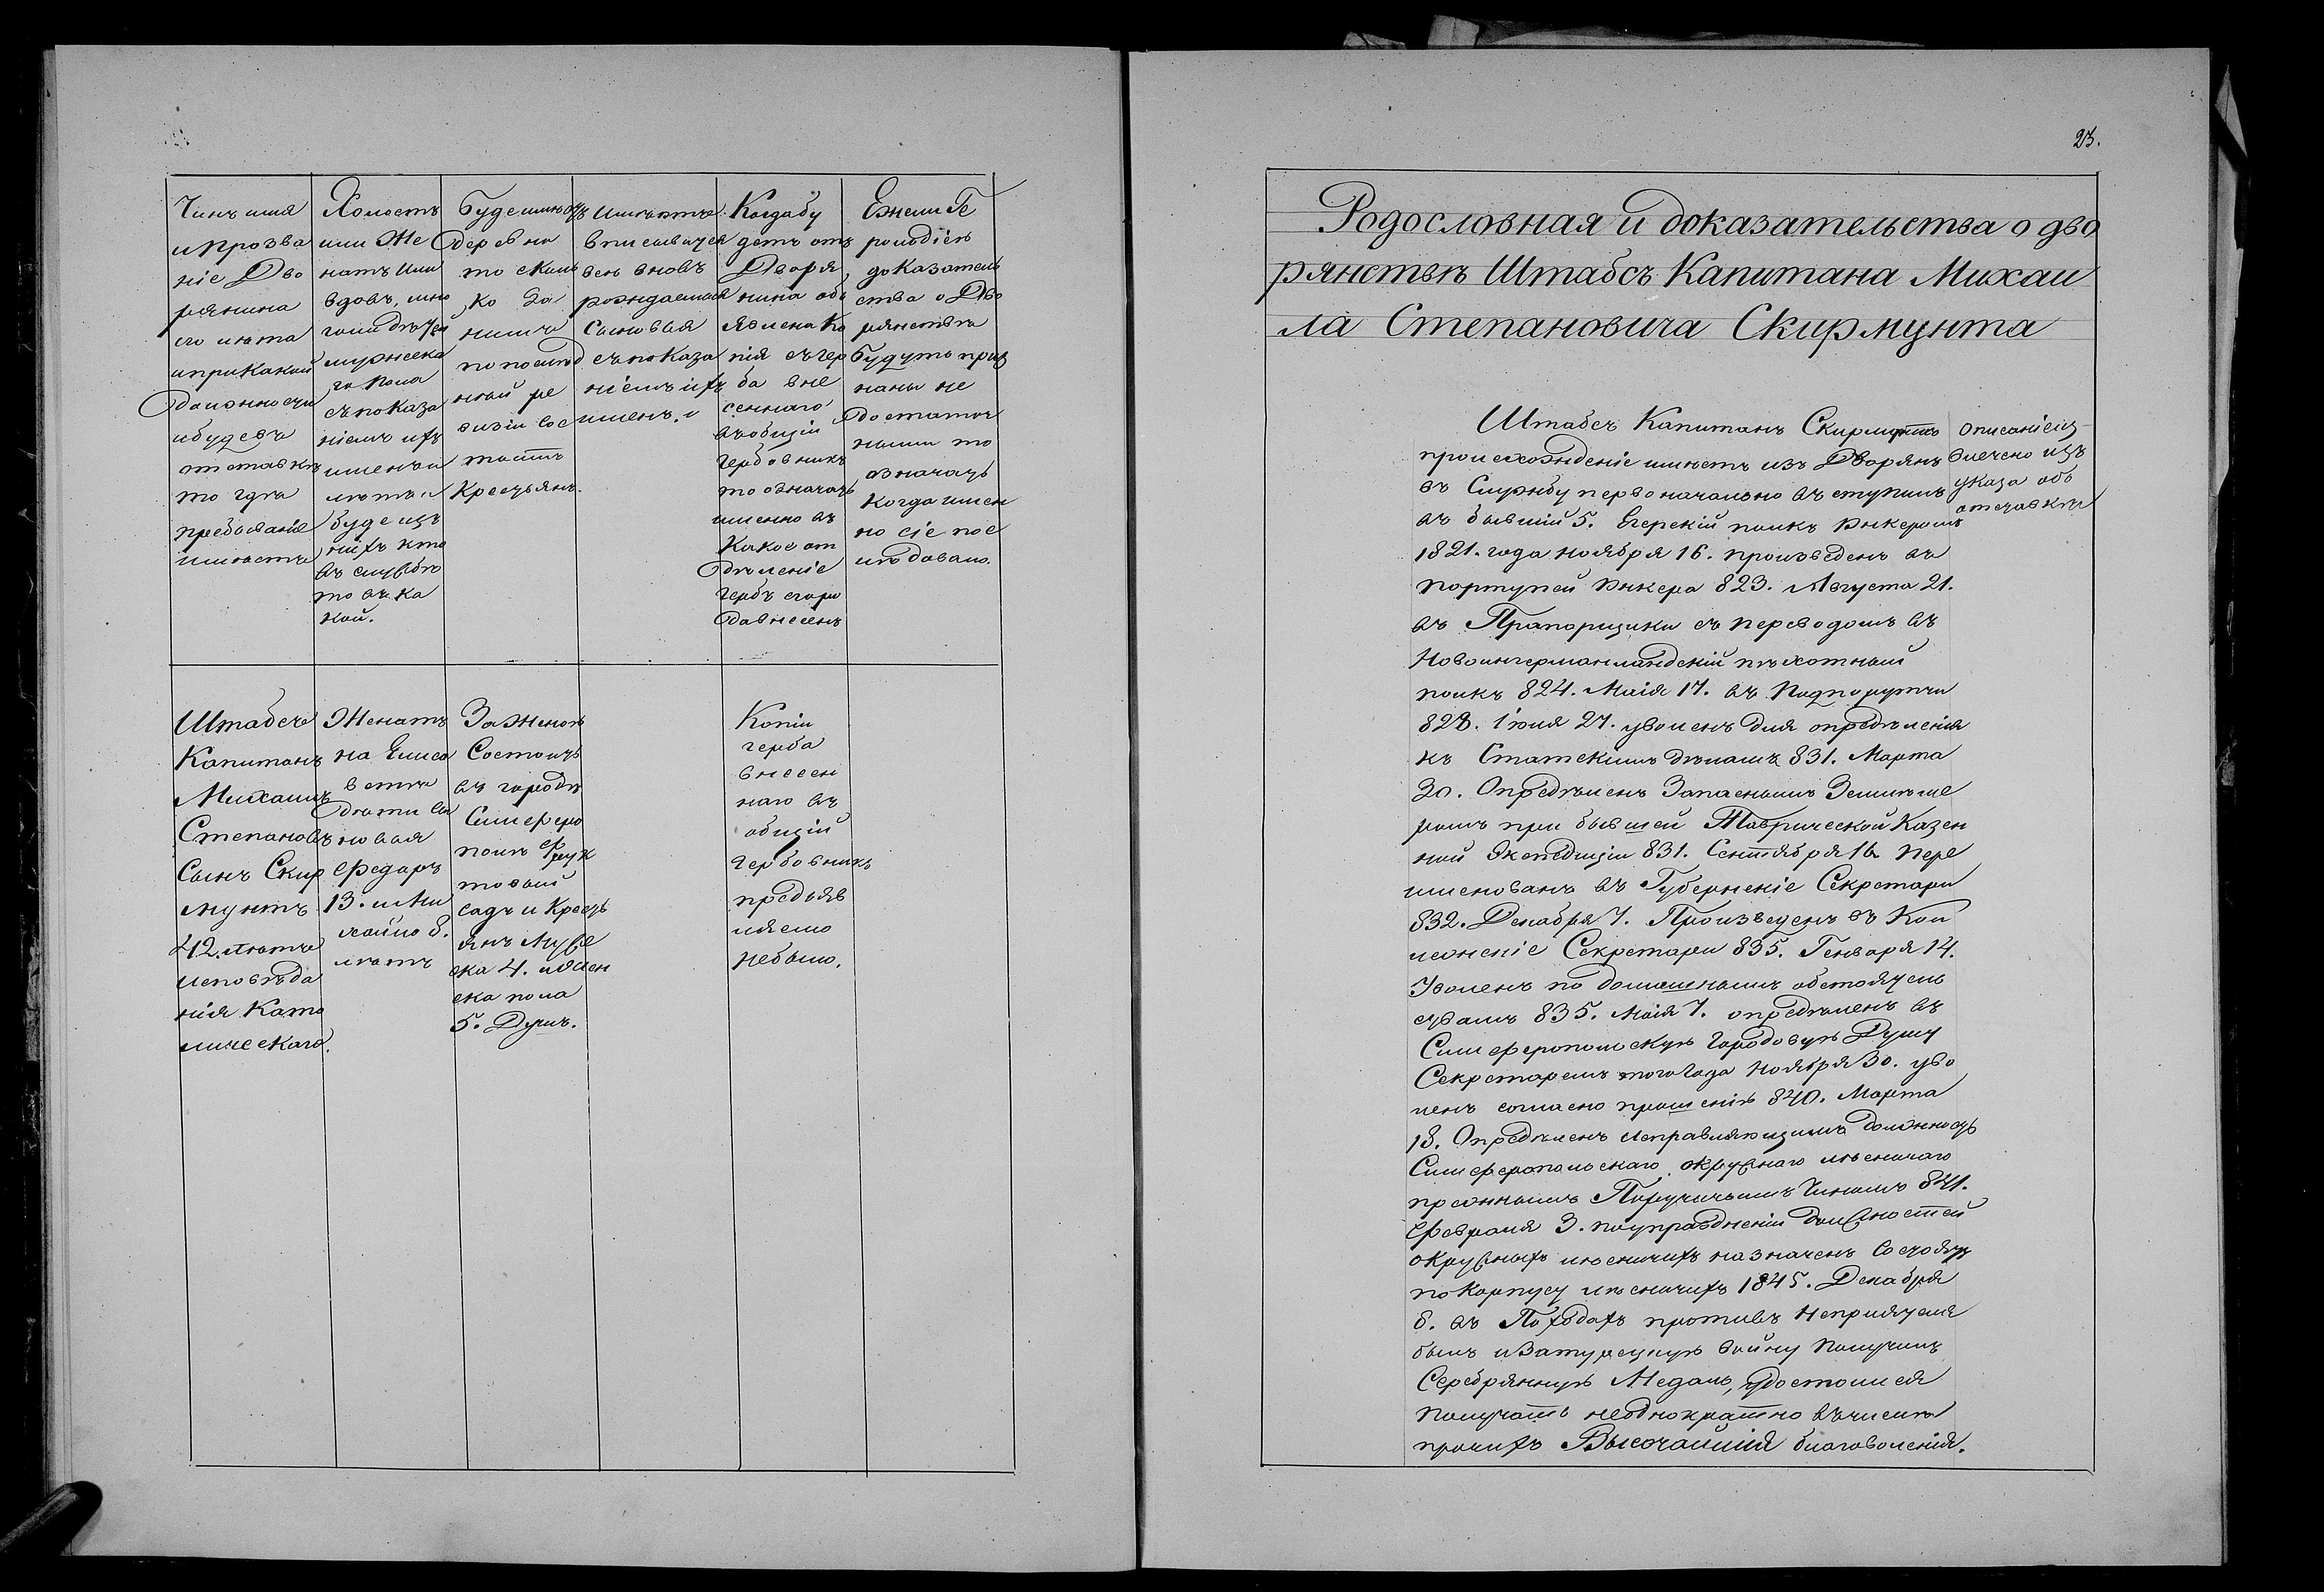 Чинъ имя
и прозва
ніе Дво
рянина
его лѣта
и при какой
должности
и буде въ
отставкѣ
то гдѣ
пребываніе
имѣетъ
Холостъ
или Же
натъ или
вдовъ, мно
го ли дѣтей
мужеска
го пола
съ показа
ніемъ ихъ
именъ и
лѣтъ и
буде изъ
нихъ кто
въ службѣ
то въ ка
кой.
Буде имѣетъ
деревни
то сколь
ко за
нимъ
по послѣд
ней ре
визіи сос
тоитъ
Крестьянъ.
вписывается
всѣ вновь
рождаемыя
сыновья
съ показа
ніемъ ихъ
именъ.
Когда бу
детъ отъ
Дворя
нина объ
явлена Ко
пія съ гер
ба вне
сеннаго
въ общій
Гербовникъ
то означать
именно въ
какое от
дѣленіе
гербъ его ро
да внесенъ
Ежели Ге
рольдіею
доказатель
ства о Дво
рянствѣ
будутъ приз
наны не
достаточ
ными то
означать
когда имен
но сіе пос
лѣдовало.
Штабсъ
Капитанъ
Михаилъ
Степановъ
Сынъ Скир
мунтъ
42. лѣтъ
исповѣда
нія Като
лическаго.
Женатъ
на Елиса
ветѣ
дѣти Сы
новья
Федоръ
13. и Ми
хайло 8.
лѣтъ
За женою
Состоитъ
въ городѣ
Симферо
полѣ фрук
товый
садъ и Кресть
янъ муже
ска 4. и жен
ска пола
5. Душъ.
Копіи
герба
внесен
наго въ
общій
Гербовникъ
предъяв
ляемо
небыло.
23.
Родословная и доказательства о дво
рянствѣ Штабсъ Капитана Михаи
ла Степановича Скирмунта
Штабсъ Капитанъ Скирмунтъ
происхожденіе имѣетъ изъ Дворянъ
въ Службу первоначально вступилъ
въ бывшій 5. Егерскій полкъ Юнкеромъ
1821. года Ноября 16. произведенъ въ
портупей Юнкера 823. Августа 21.
въ Прапорщики съ переводомъ въ
Новоингерманландскій пѣхотный
полкъ 824. Маія 17. въ Подпоручики
828. Іюля 27. уволенъ для опредѣленія
къ Статскимъ дѣламъ 831. Марта
20. Опредѣленъ Запаснымъ Землеме
ромъ при бывшей Таврической Казен
ной Экспедиціи 831. Сентября 16 Пере
именованъ въ Губернскіе Секретари
832. Декабря 7. Произведенъ въ Кол
лежскіе Секретари 835. Генваря 14.
Уволенъ по домашнимъ обстоятель
ствамъ 835. Маія 7. опредѣленъ въ
Симферопольскую Городовую Думу
Секретаремъ того года Ноября 30. уво
ленъ согласно прошенію 840. Марта
18. Опредѣленъ исправляющимъ должность
Симферопольскаго окружнаго лѣсничаго
прежнимъ Поручичьимъ Чиномъ 841.
Февраля 3. по упраздненіи должностей
окружныхъ лѣсничихъ назначенъ Состоять
по Корпусу лѣсничихъ 1845. Декабря
8. въ Походахъ противъ Непріятеля
былъ и За турецкую войну получилъ
Серебрянную Медаль, удостоился
получать неоднократно въ числѣ
прочихъ Высочайшія благоволенія.
Описаніе из
влечено изъ
указа объ
отставкѣ